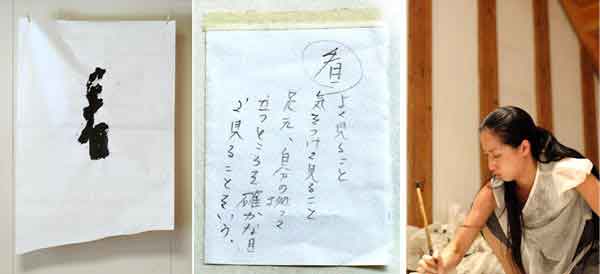 看
看
よく見ること
気をつけて見ること
足元、自分の拠って
立つところを確かな目
で見ることをいう。